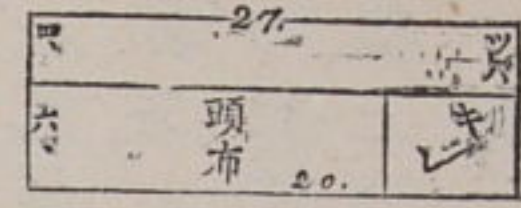 27.
四
六
頭布
20.
キレ